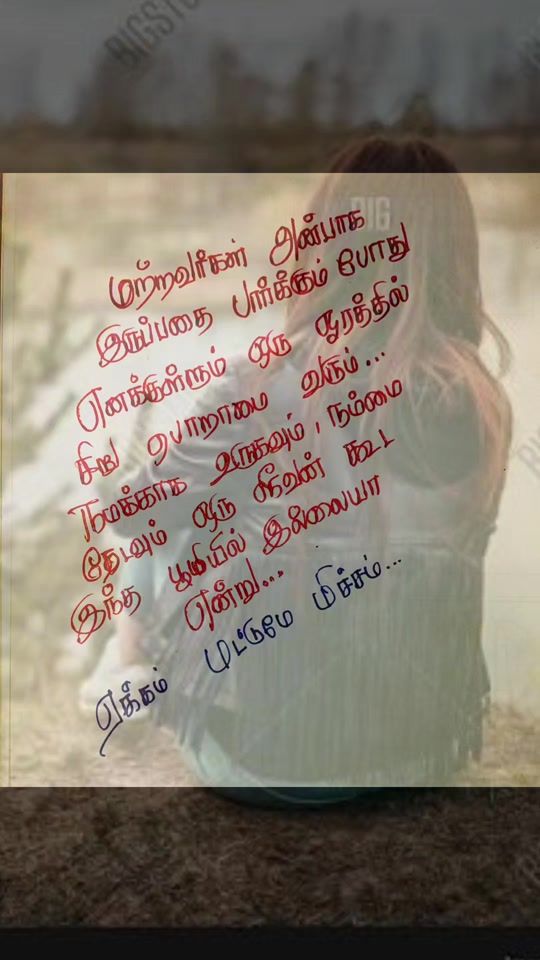 BIGSTOCK
BIG
மற்றவர்கள் அன்பாக
இருப்பதை பார்க்கும் போது
எனக்குள்ளும் ஒரு ஓரத்தில்
சிறு பொறாமை வரும்...
நமக்காக உருகவும், நம்மை
தேடவும் ஒரு ஜீவன் கூட
இந்த பூமியில் இல்லையா
என்று...
ஏக்கம் மட்டுமே மிச்சம்...